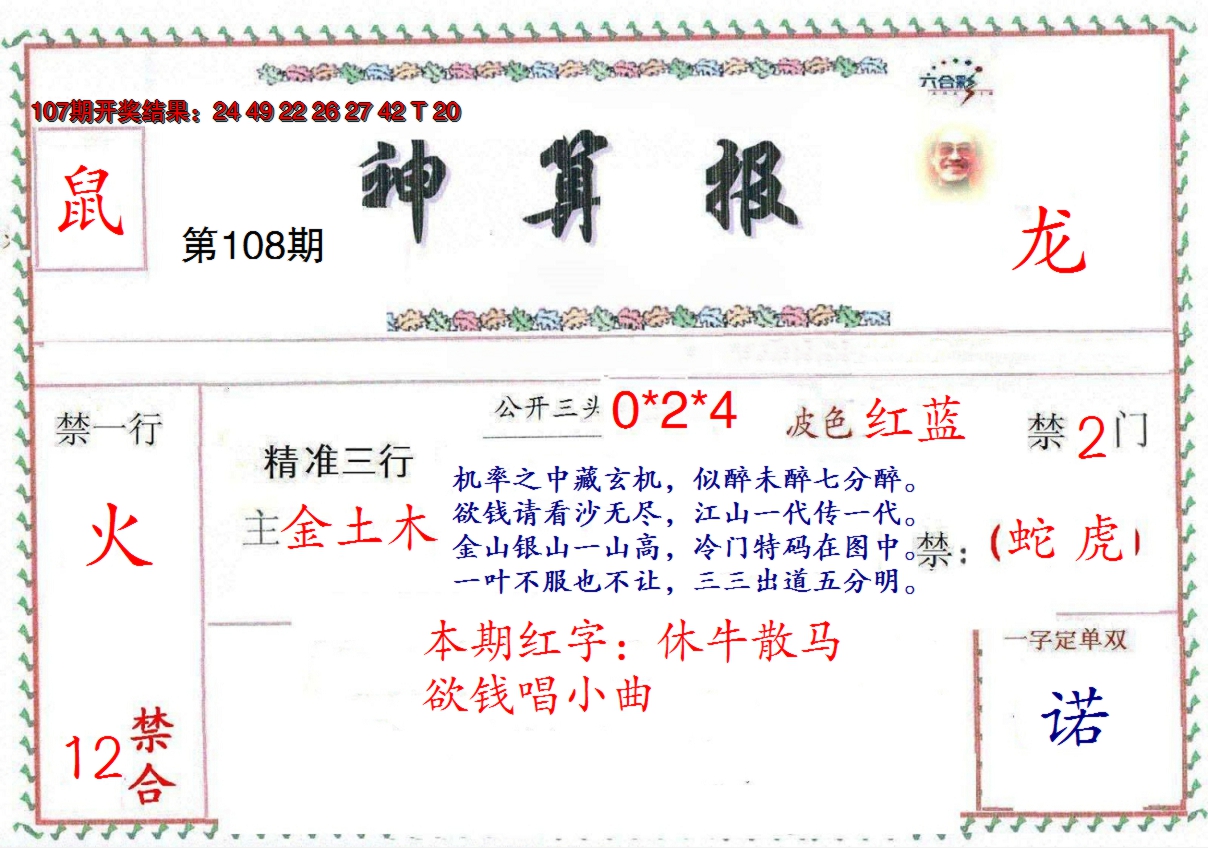 六合彩
107期开奖结果：24 49 22 26 27 42 T 20
神算报
鼠
第108期
龙
禁一行
火
12禁合
精准三行
主金土木
公开三头 0*2*4
波色 红蓝
禁2门
机率之中藏玄机，似醉未醉七分醉。
欲钱请看沙无尽，江山一代传一代。
金山银山一山高，冷门特码在图中。
一叶不服也不让，三三出道五分明。
禁：（蛇 虎）
本期红字：休牛散马
欲钱唱小曲
一字定单双
诺